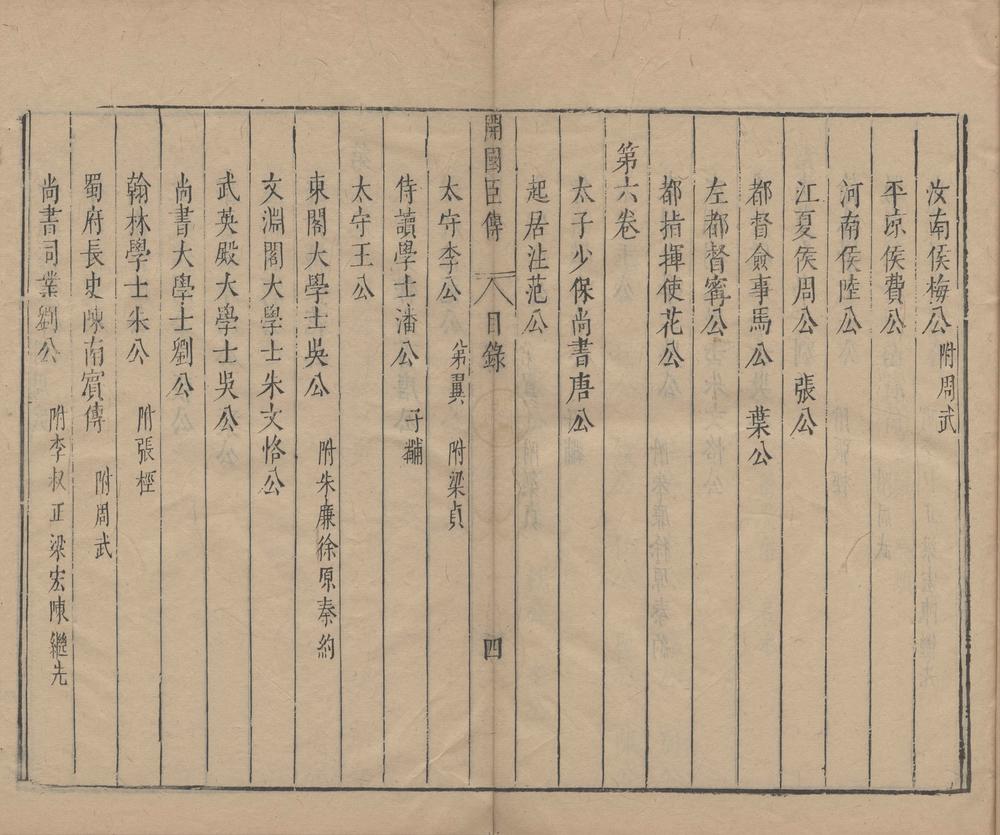 汝南侯梅公 附周武
平凉侯費公
河南侯陸公
江夏侯周公 張公
都督僉事馬公 葉公
左都督甯公
都指揮使花公
第六卷
太子少保尚書唐公
起居注范公
開國臣傳 目錄 四
太守李公 弟異 附梁貞
侍讀學士潘公 子黼
太守王公
東閣大學士吳公 附朱廉徐原秦約
文淵閣大學士朱文恪公
武英殿大學士吳公
尚書大學士劉公
翰林學士朱公 附張樞
蜀府長史陳南賓傳 附周武
尚書司業劉公 附李叔正梁宏陳繼先